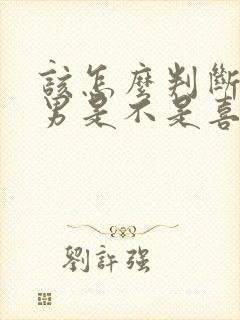 該怎麼判斷
男是不是喜
劉許强